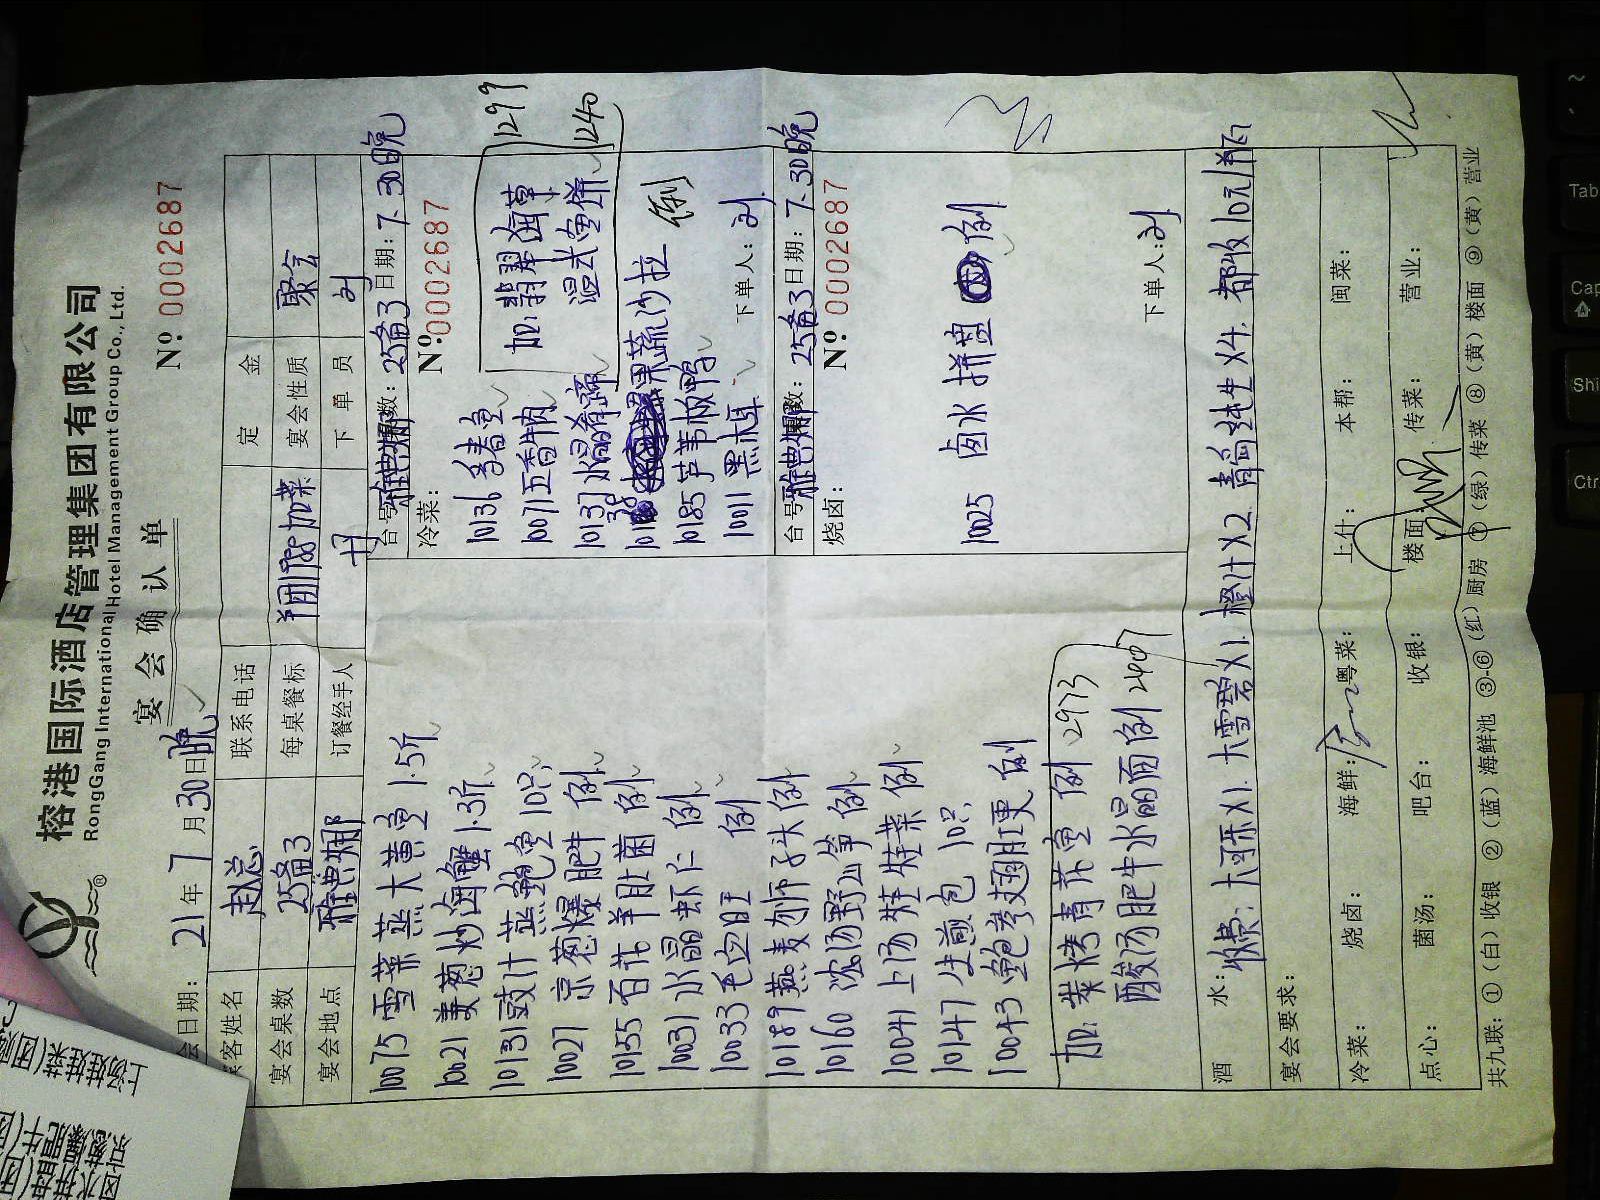 榕港国际酒店管理集团有限公司
RongGang International Hotel Management Group Co., Ltd.
宴会确认单
Nº 0002687
会日期: 21年7月30日晚
客姓名 赵总 联系电话 定金
宴会桌数 25备3 每桌餐标 加菜 宴会性质 聚会
宴会地点 雅典娜 订餐经手人 下单员 刘
10075 雪菜蒸大黄鱼 1.5斤
10021 姜葱炒海蟹 1.3斤
10131 豉汁蒸鲍鱼 10只
10027 京葱爆肥牛 例
10155 百花羊肚菌 例
10031 水晶虾仁 例
10033 毛血旺 例
10189 燕麦狮子头 例
10160 浓汤野山笋 例
10041 上汤娃娃菜 例
10147 生煎包 10只
10043 鲍参翅肚更 例
加: 炭烤青花鱼 例 2973
酸汤肥牛水晶面 例 2407
台号 雅典娜 数: 25备3 日期: 7.30晚
冷菜:
Nº 0002687
10136 多春鱼
10071 五香牛肉
10137 水晶肴蹄
果蔬沙拉 例
10185 芦苇板鸭
10011 黑木耳
加: 翡翠海草 1299
温式鱼饼 1240
下单人: 刘
台号 雅典娜 数: 25备3 日期: 7.30晚
烧卤:
Nº 0002687
10025 卤水拼盘 例
下单人: 刘
酒水: 大可乐X1. 大雪碧X1. 橙汁X2. 青岛纯生X4. 都收10元/瓶
宴会要求:
冷菜: 烧卤: 海鲜: 粤菜: 上什: 本帮: 闽菜:
点心: 菌汤: 吧台: 收银: 楼面: 传菜: 营业:
共九联: ①(白)收银 ②(蓝)海鲜池 ③-⑥(红)厨房 ⑦(绿)传菜 ⑧(黄)楼面 ⑨(黄)营业
Tab
Ctr